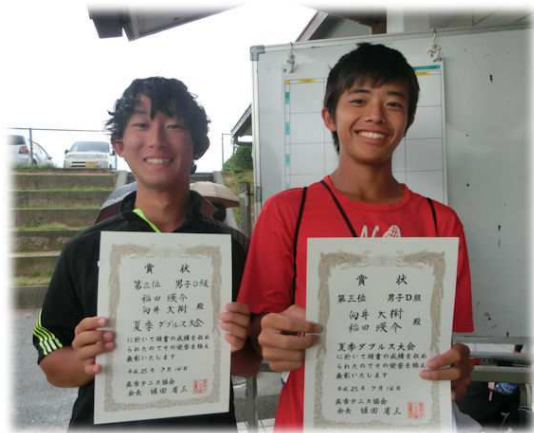 賞 状
第三位 男子D級
稲田 瑛介
向井 大樹 殿
夏季ダブルス大会
に於いて頭書の成績を収め
られたのでその栄誉を称え
表彰いたします
平成25年7月14日
呉市テニス協会
会長 植田 省三
賞 状
第三位 男子D級
向井 大樹
稲田 瑛介 殿
夏季ダブルス大会
に於いて頭書の成績を収め
られたのでその栄誉を称え
表彰いたします
平成25年7月14日
呉市テニス協会
会長 植田 省三